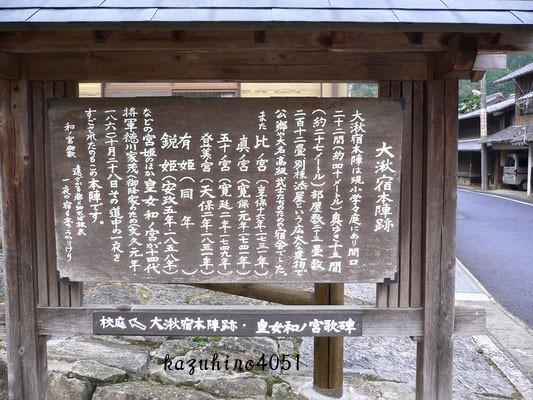 大湫宿本陣跡
大湫宿本陣は現小学校々庭にあり間口
二十二間(約四十メートル)奥ゆき十五間
(約二十七メートル)部屋数二十三畳数
二百十二畳別棟添屋という広大な建物で
公卿や大名高級武士たちのための宿舎でした。
また 比ノ宮(享保十六年一七三一年)
真ノ宮(寛保元年一七四一年)
五十宮(寛延二年一七四九年)
登美宮(天保二年一八三一年)
有姫(同年)
鋭姫(安政五年一八五八年)
などの宮姫のほか皇女和ノ宮が十四代
将軍徳川家茂に御降嫁のため文久元年
(一八六一)十月二十八日その道中の一夜を
すごされたのもこの本陣です。
和宮御歌
遠ざかる都と知れば旅衣
一夜の宿も立ちうかりけり
校庭 大湫宿本陣跡・皇女和ノ宮歌碑
kazuhino4051